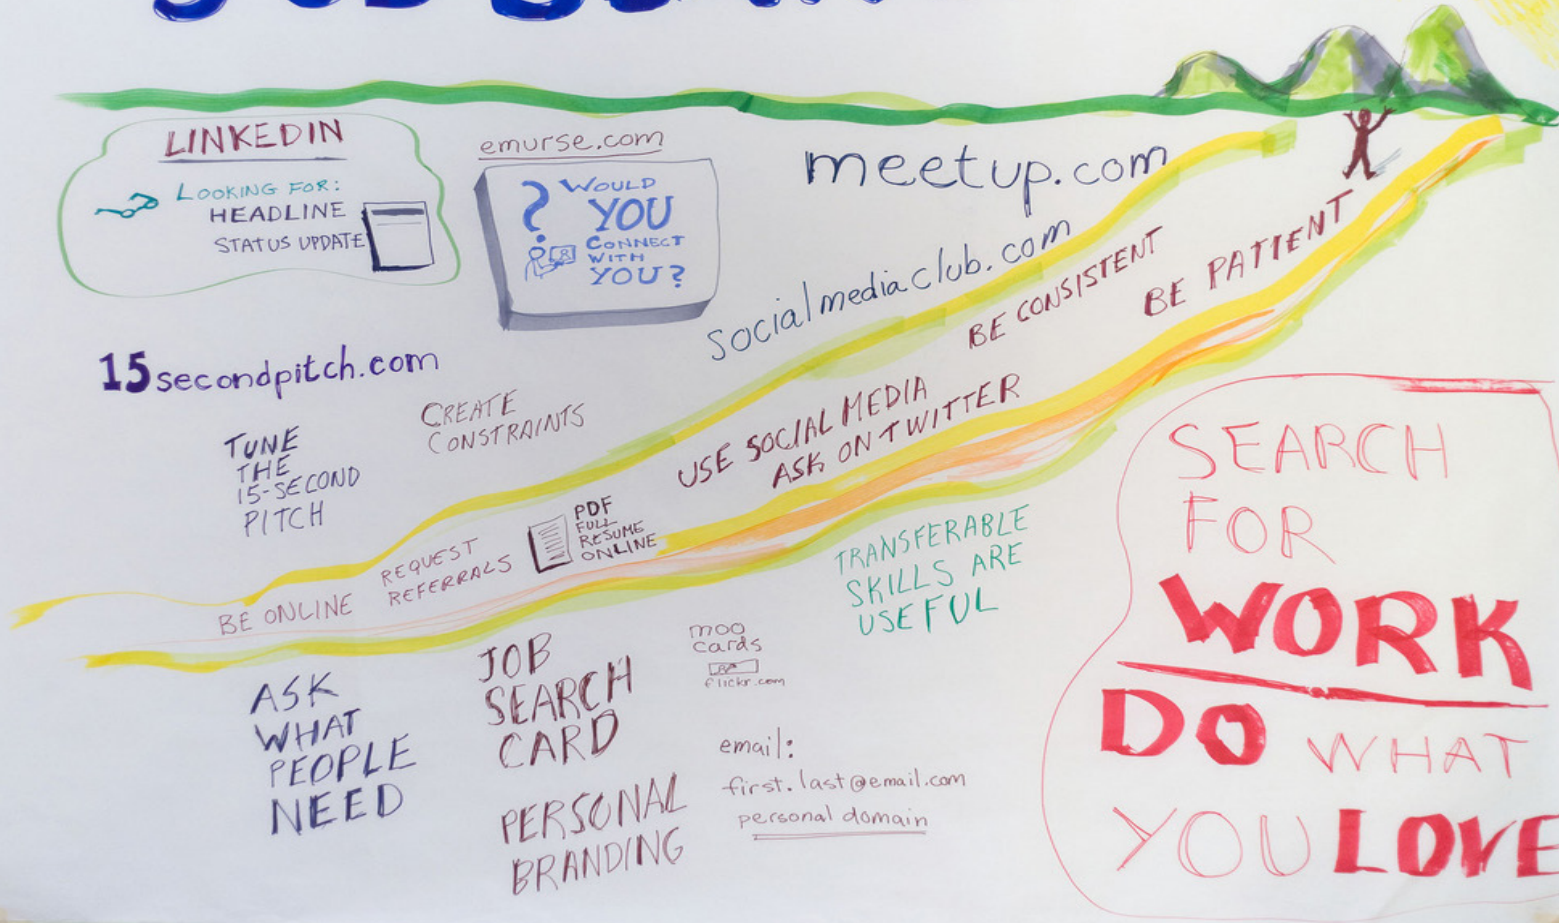 LINKEDIN
LOOKING FOR:
HEADLINE
STATUS UPDATE
emurse.com
? WOULD
YOU
CONNECT
WITH
YOU?
meetup.com
socialmediaclub.com
BE CONSISTENT
BE PATIENT
15secondpitch.com
TUNE
THE
15-SECOND
PITCH
CREATE
CONSTRAINTS
USE SOCIAL MEDIA
ASK ON TWITTER
PDF
FULL
RESUME
ONLINE
REQUEST
REFERRALS
BE ONLINE
TRANSFERABLE
SKILLS ARE
USEFUL
ASK
WHAT
PEOPLE
NEED
JOB
SEARCH
CARD
PERSONAL
BRANDING
moo
cards
flickr.com
email:
first.last@email.com
personal domain
SEARCH
FOR
WORK
DO WHAT
YOU LOVE